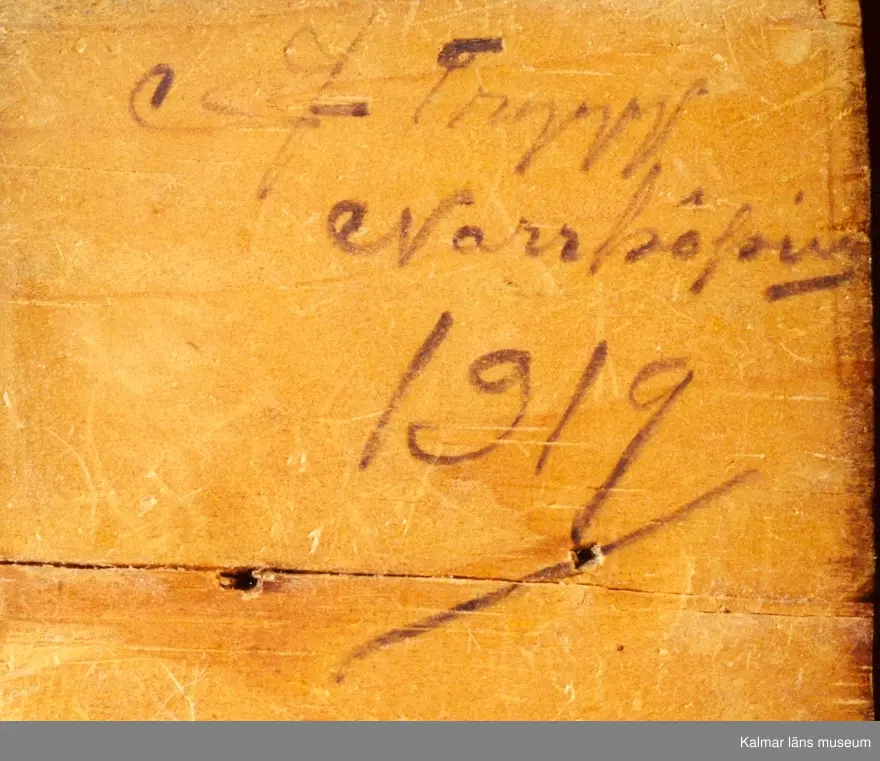 Trypp
Norrköping
1919
Kalmar läns museum